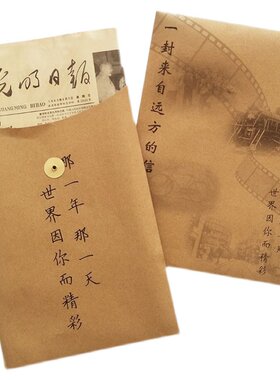 光明日报
GUANGMING RIBAO
那一年 那一天
世界因你而精彩
一封来自远方的信
世界因你而精彩